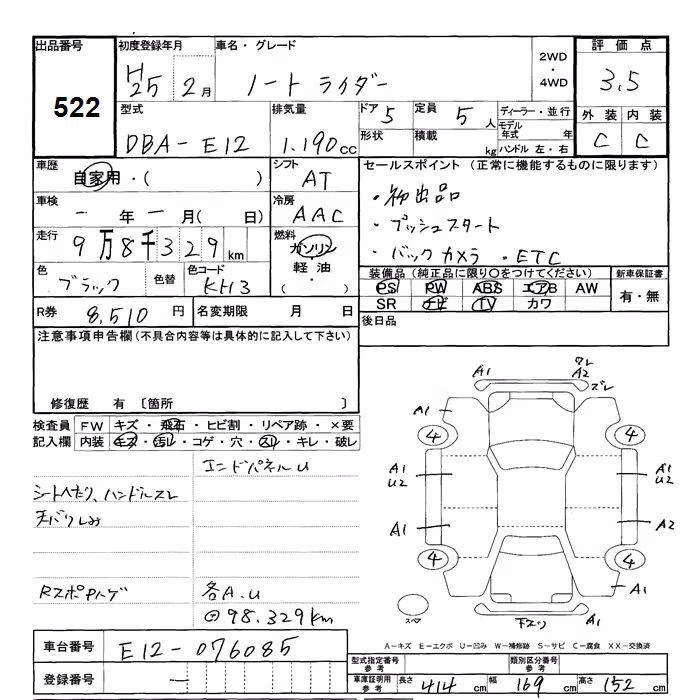 出品番号
522
初度登録年月
H25 2月
車名・グレード
ノート ライダー
2WD
・
4WD
評価点
3.5
型式
DBA-E12
排気量
1.190cc
ドア 5
定員 5人
ディーラー・並行
モデル年式 年
ハンドル 左・右
形状
積載 kg
外装 内装
C C
車歴
自家用・( )
シフト
AT
車検
一年一月( 日)
冷房
AAC
走行
9万8千329km
燃料
ガソリン
軽油・
( )
色
ブラック
色替
色コード
KH3
セールスポイント(正常に機能するものに限ります)
・初出品
・プッシュスタート
・バックカメラ ・ETC
装備品(純正品に限り○をつけてください)
新車保証書
PS PW ABS エアB AW
SR ナビ TV カワ
有・無
R券 8,510円
名変期限 月 日
後日品
注意事項申告欄(不具合内容等は具体的に記入して下さい)
修復歴 有 〔箇所 〕
検査員記入欄
FW キズ・飛石・ヒビ割・リペア跡・×要
内装 キズ・汚レ・コゲ・穴・スレ・キレ・破レ
エンドパネルU
シートヘタリ、ハンドルスレ
天バリしみ
RスポPハゲ
各A.U
98.329km
A1
ワレ
A2
ズレ
A1
4
4
A1
U2
A1
U2
A1
A2
4
4
A1
スペア
下スリ
A1
A-キズ E-エクボ U-凹み W-補修跡 S-サビ C-腐食 XX-交換済
車台番号
E12-076085
登録番号
一
型式指定番号 参考
類別区分番号 参考
車庫証明用 参考
長さ 414cm
幅 169cm
高さ 152cm